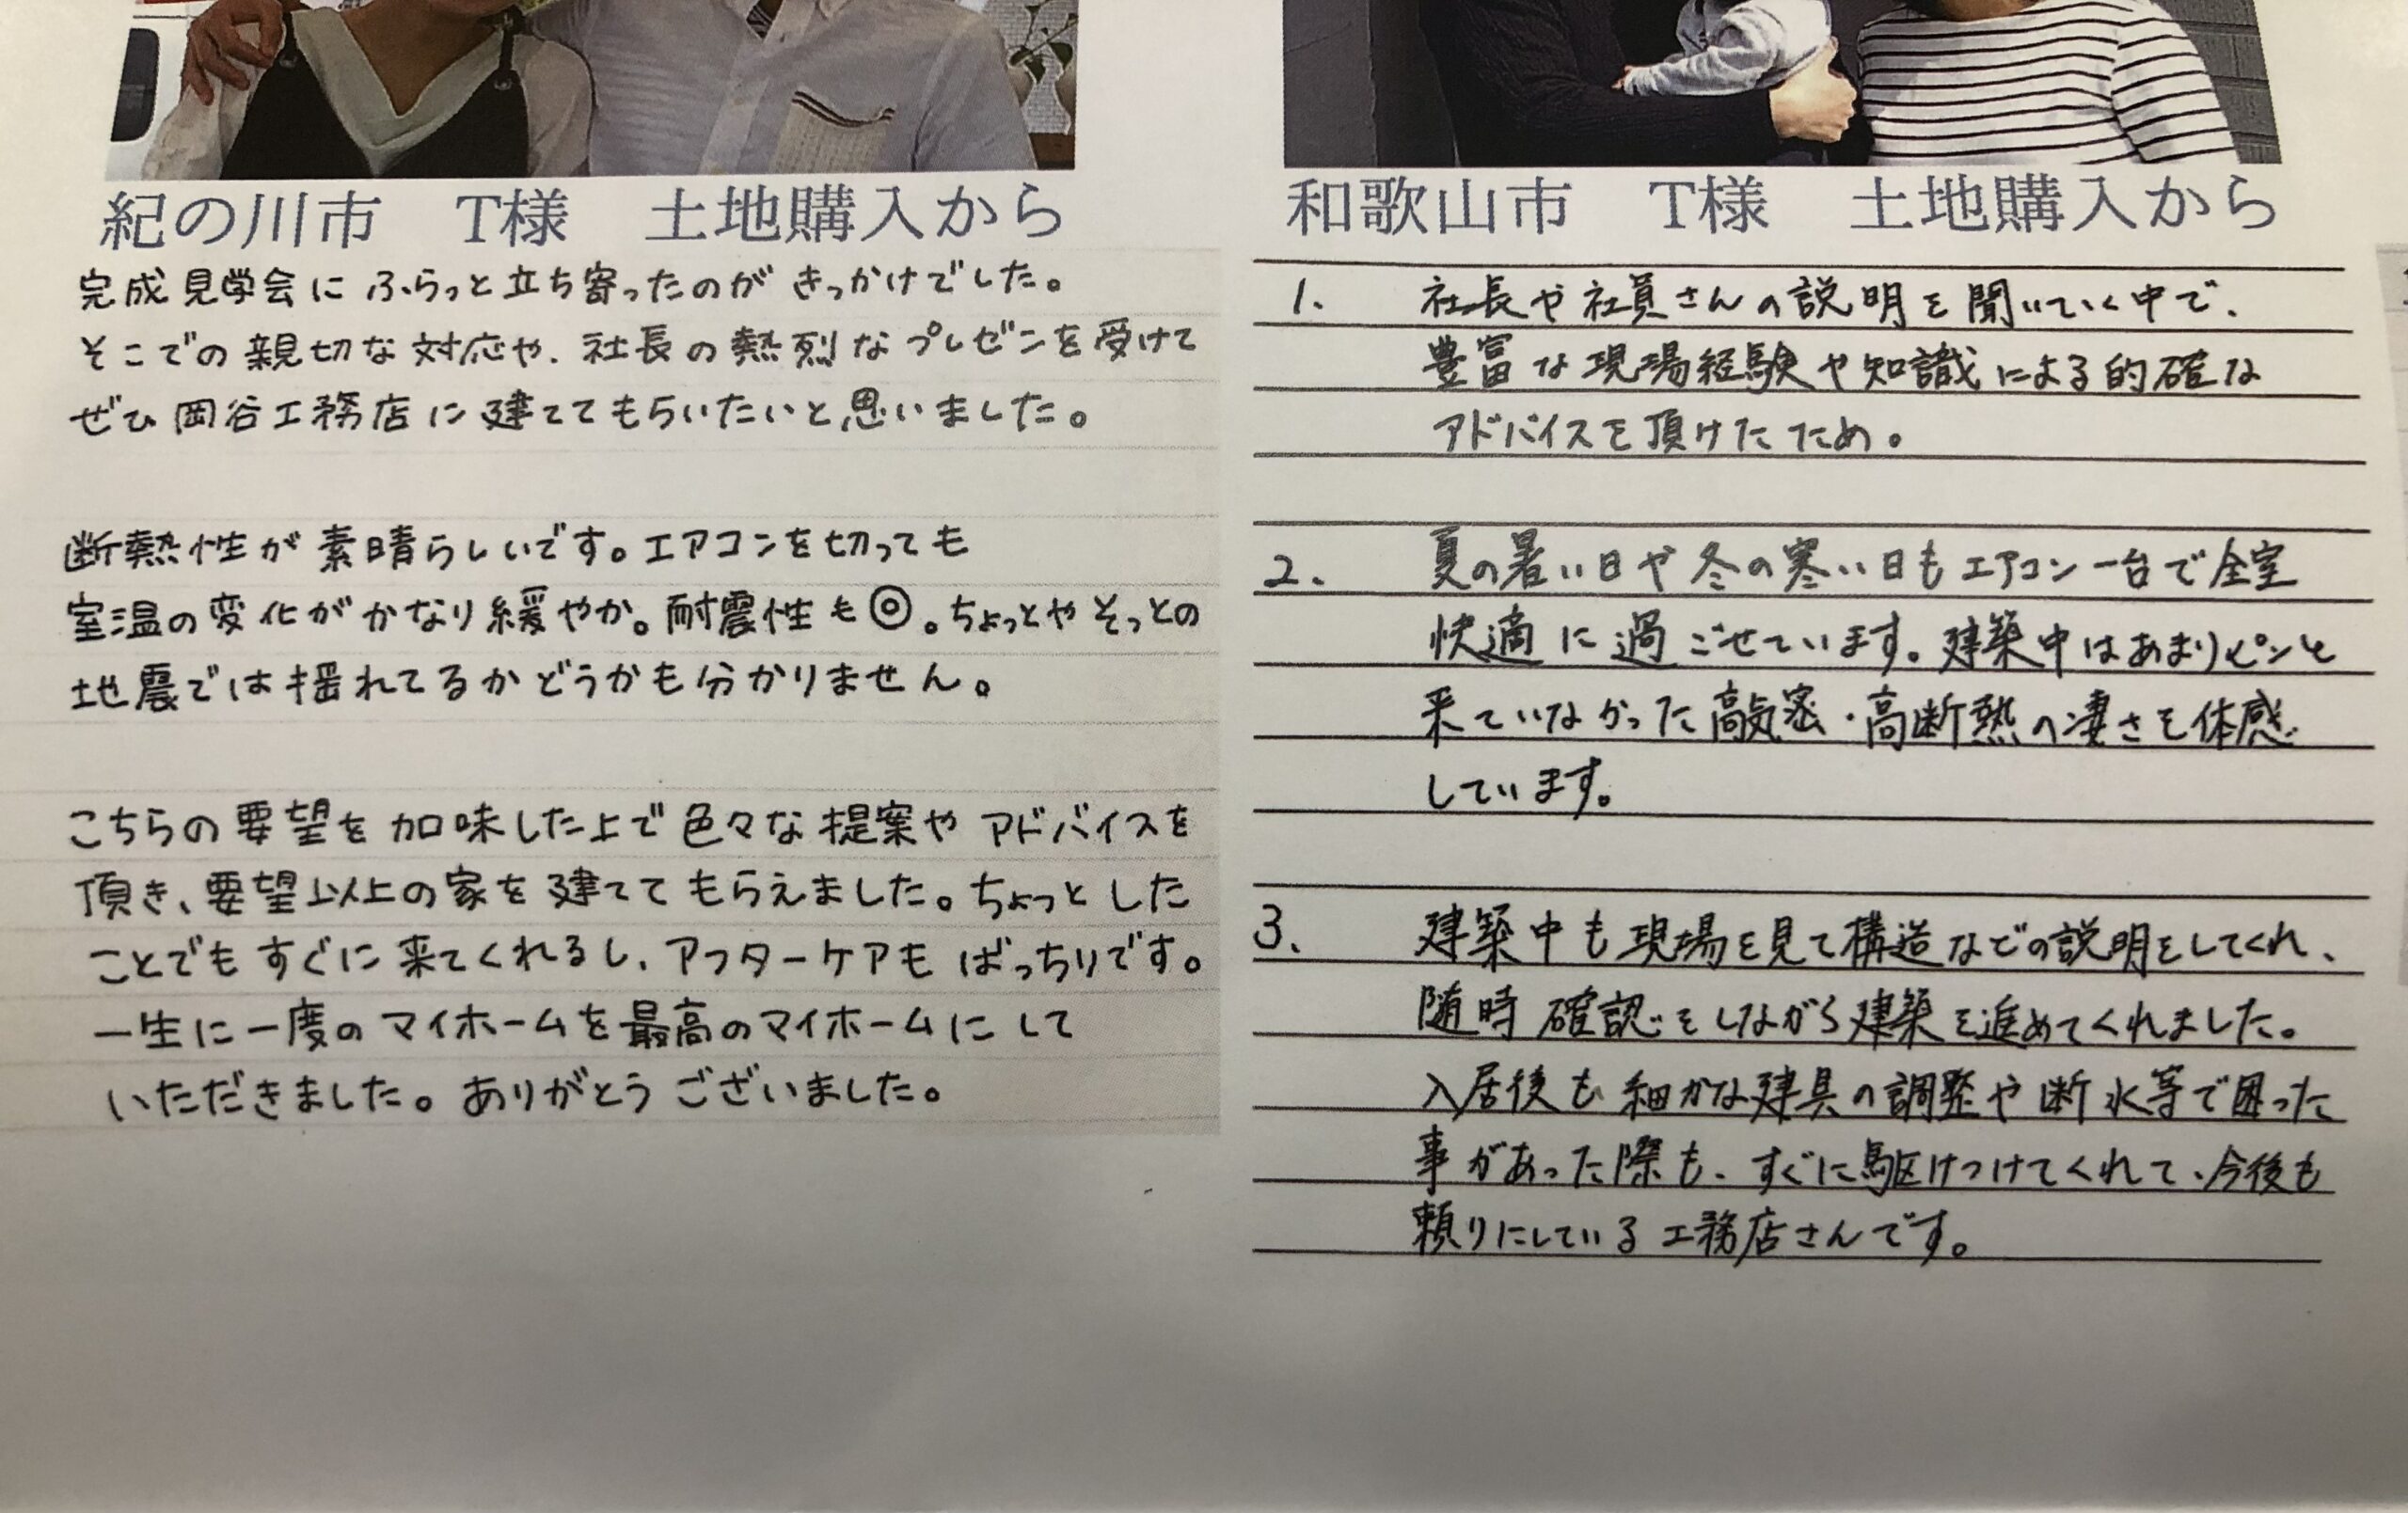 紀の川市　T様　土地購入から
完成見学会にふらっと立ち寄ったのがきっかけでした。
そこでの親切な対応や、社長の熱烈なプレゼンを受けて
ぜひ岡谷工務店に建ててもらいたいと思いました。
断熱性が素晴らしいです。エアコンを切っても
室温の変化がかなり緩やか。耐震性も◎。ちょっとやそっとの
地震では揺れてるかどうかも分かりません。
こちらの要望を加味した上で色々な提案やアドバイスを
頂き、要望以上の家を建ててもらえました。ちょっとした
ことでもすぐに来てくれるし、アフターケアもばっちりです。
一生に一度のマイホームを最高のマイホームにして
いただきました。ありがとうございました。
和歌山市　T様　土地購入から
1. 社長や社員さんの説明を聞いていく中で、
豊富な現場経験や知識による的確な
アドバイスを頂けたため。
2. 夏の暑い日や冬の寒い日もエアコン一台で全室
快適に過ごせています。建築中はあまりピンと
来ていなかった高気密・高断熱の凄さを体感
しています。
3. 建築中も現場を見て構造などの説明をしてくれ、
随時確認をしながら建築を進めてくれました。
入居後も細かな建具の調整や断水等で困った
事があった際も、すぐに駆けつけてくれて、今後も
頼りにしている工務店さんです。